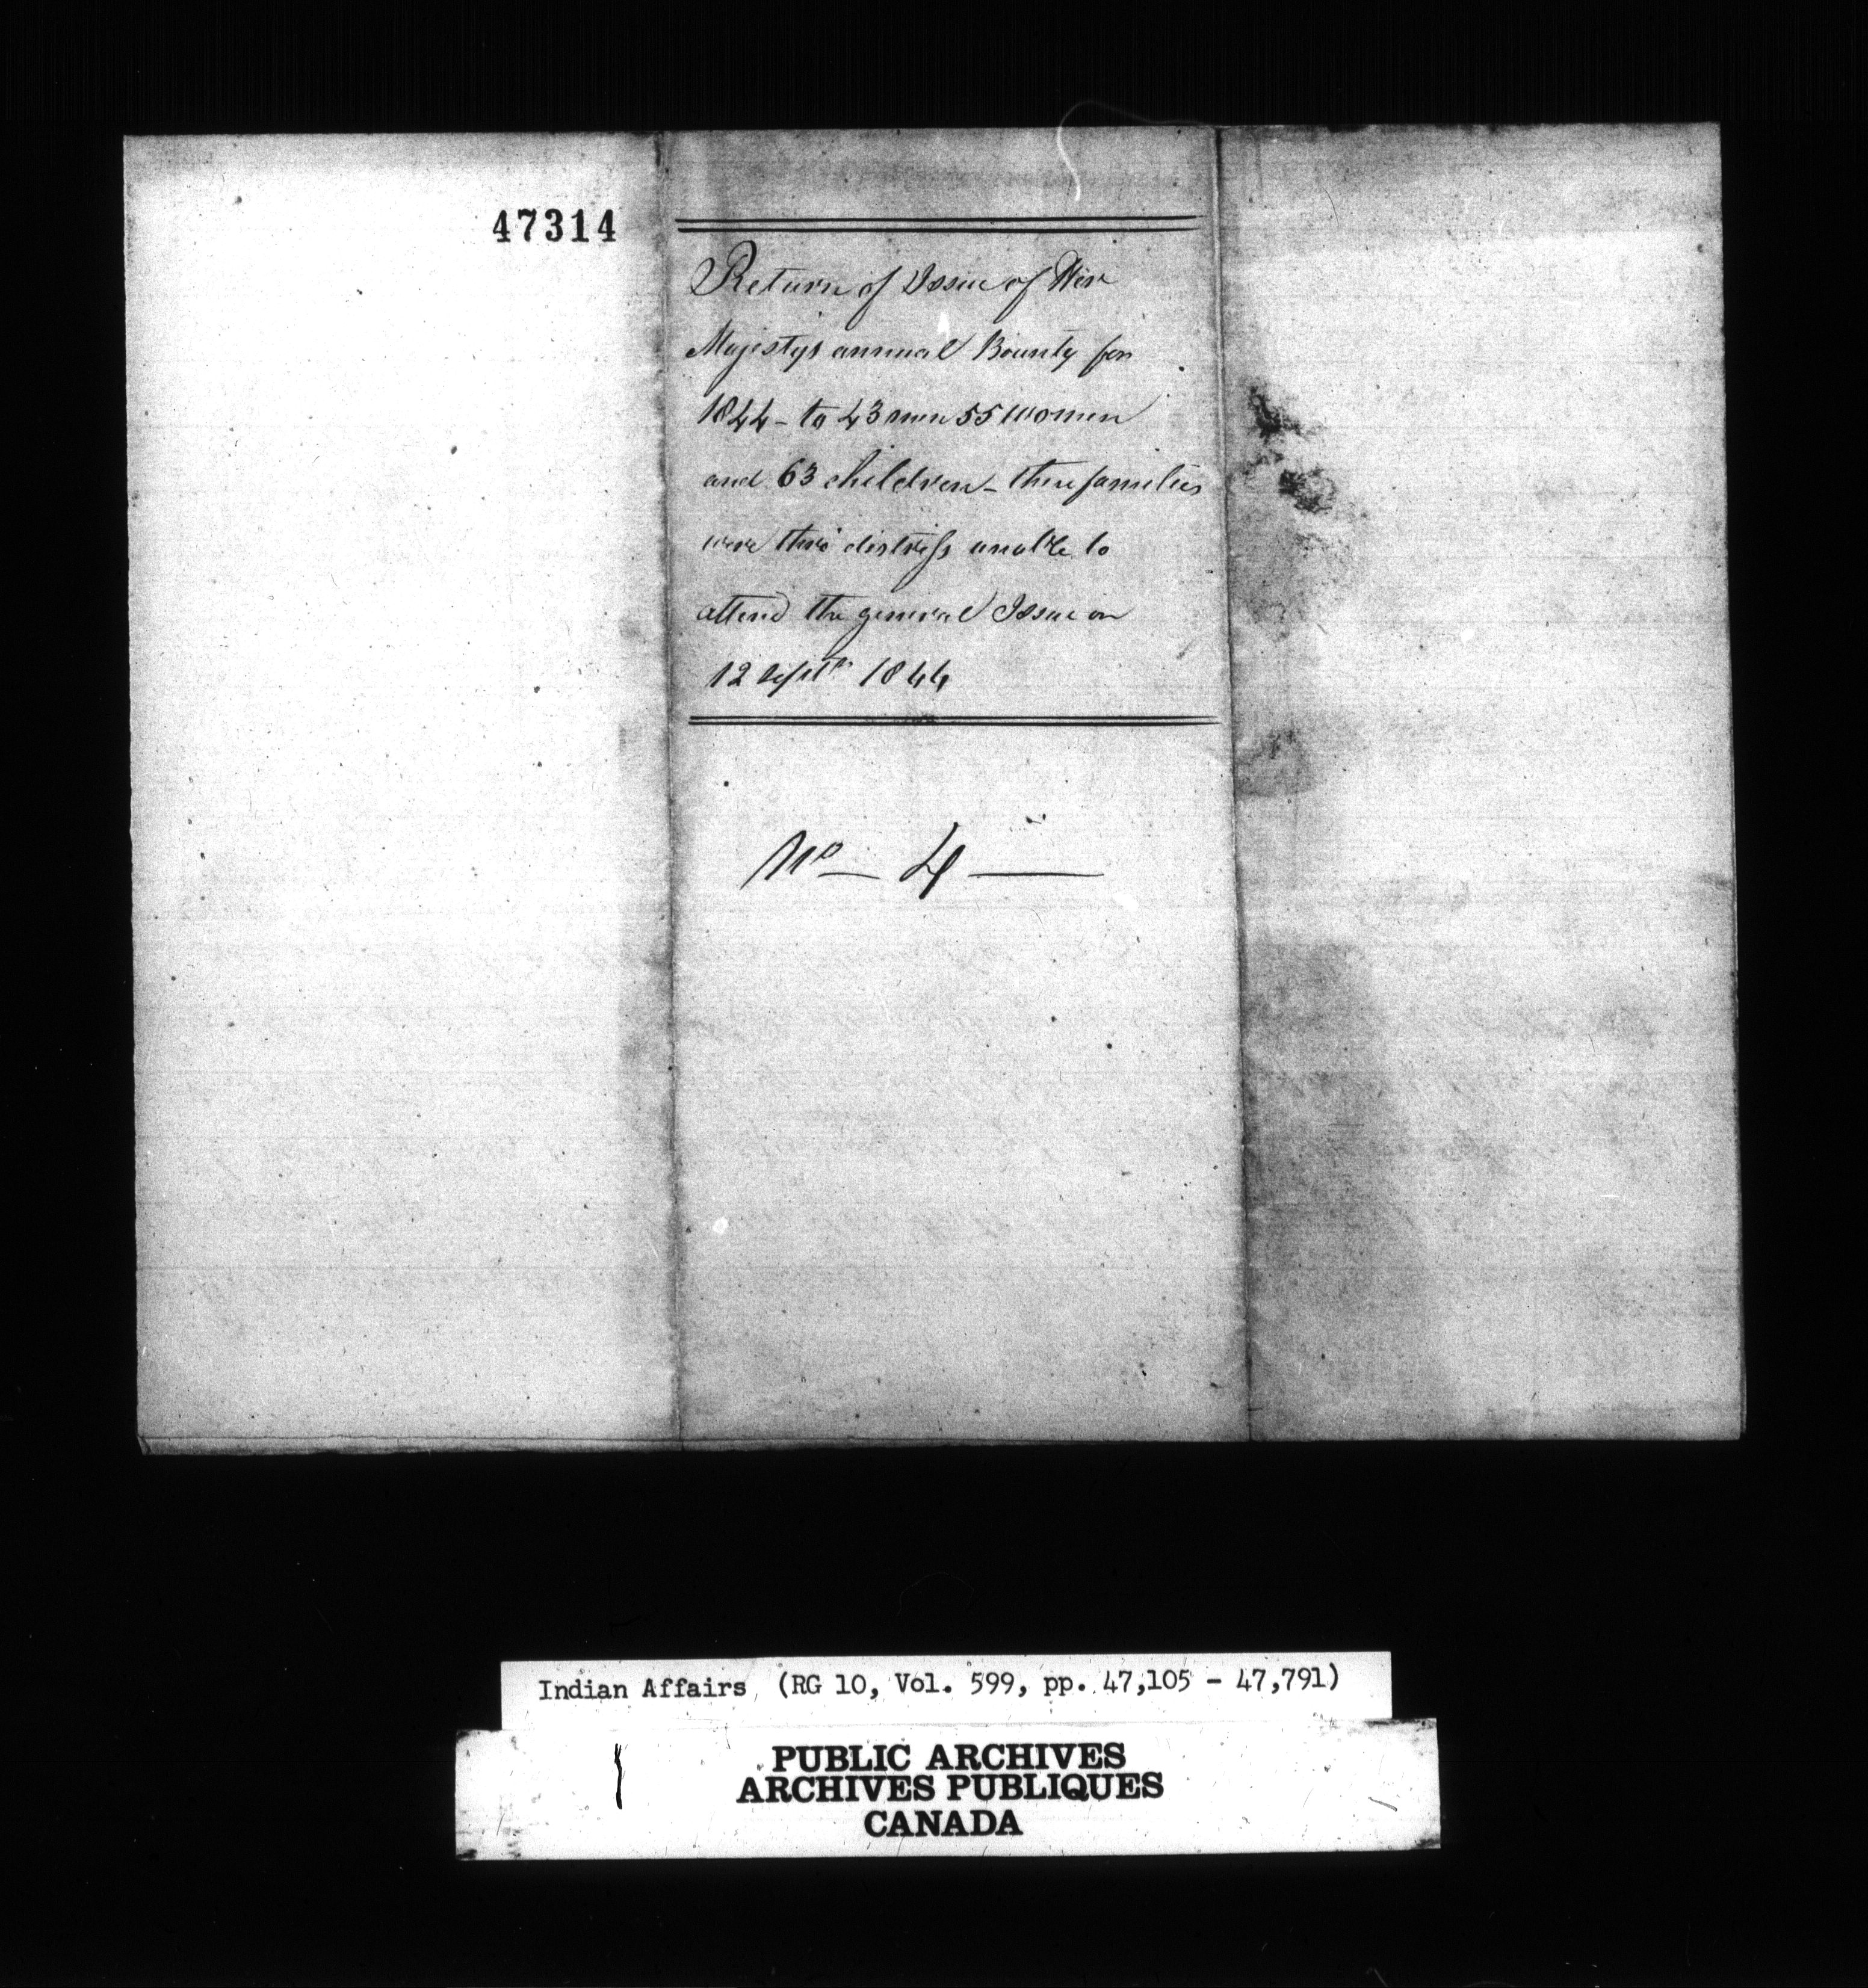 47314
Return of Issue of Her
Majestys annual Bounty for
1844 - to 43 men 55 women
and 63 children - these families
were thro' distress unable to
attend the general Issue on
12 Septr 1844
No 4
Indian Affairs (RG 10, Vol. 599, pp. 47,105 - 47,791)
PUBLIC ARCHIVES
ARCHIVES PUBLIQUES
CANADA